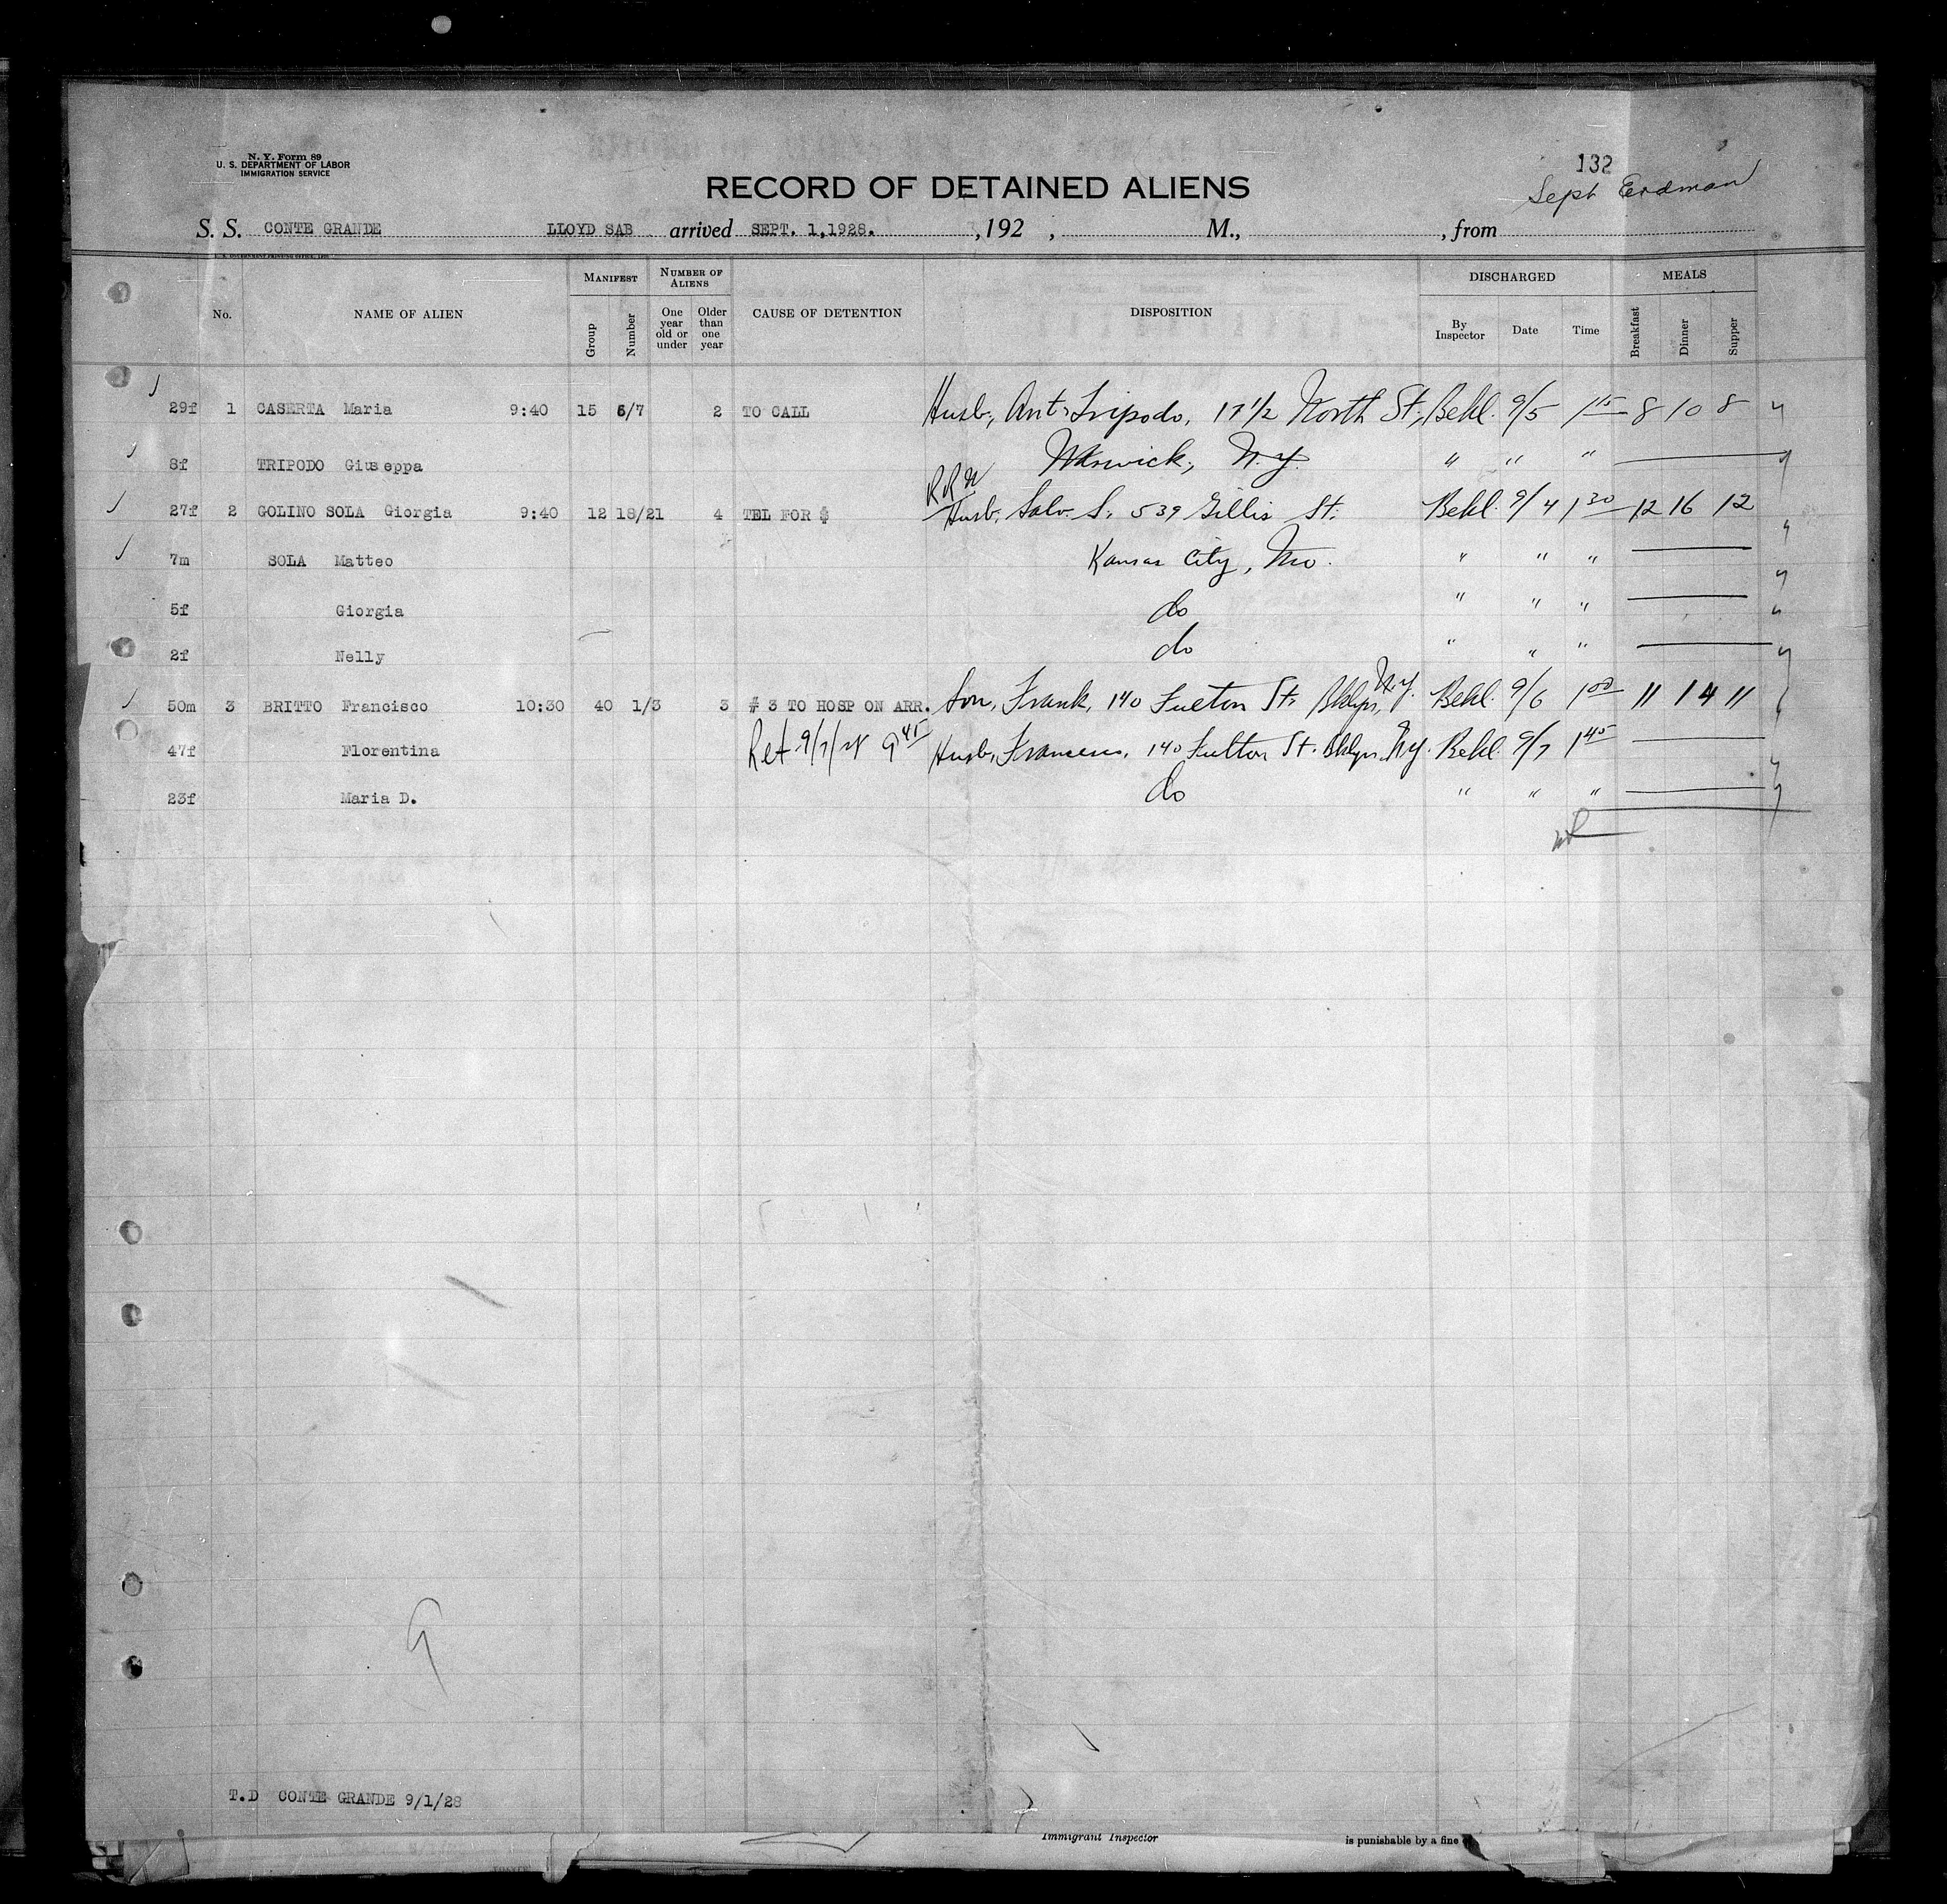 N. Y. Form 89
U. S. DEPARTMENT OF LABOR
IMMIGRATION SERVICE
132
Sept Erdman
RECORD OF DETAINED ALIENS
S. S. CONTE GRANDE LLOYD SAB arrived SEPT. 1,1928. , 192 , M., , from
No. NAME OF ALIEN MANIFEST Group Number NUMBER OF ALIENS One year old or under Older than one year CAUSE OF DETENTION DISPOSITION DISCHARGED By Inspector Date Time MEALS Breakfast Dinner Supper
29f 1 CASERTA Maria 9:40 15 6/7 2 TO CALL Husb, Ant. Tripodo, 17 1/2 North St, Bekl. 9/5 1 15 8 10 8
8f TRIPODO Giuseppa Warwick, N.Y. " " "
27f 2 GOLINO SOLA Giorgia 9:40 12 18/21 4 TEL FOR $ Husb, Salv. S. 539 Gillis St. Bekl. 9/4 1 30 12 16 12
7m SOLA Matteo Kansas City, Mo. " " "
5f Giorgia do " " "
2f Nelly do " " "
50m 3 BRITTO Francisco 10:30 40 1/3 3 # 3 TO HOSP ON ARR. Son, Frank, 140 Fulton St. Bklyn, N.Y. Bekl. 9/6 1 00 11 14 11
47f Florentina Ret 9/7/28 9 45 Husb, Francesco, 140 Fulton St. Bklyn, N.Y. Bekl. 9/7 1 45
23f Maria D. do " " "
T.D CONTE GRANDE 9/1/28
Immigrant Inspector is punishable by a fine